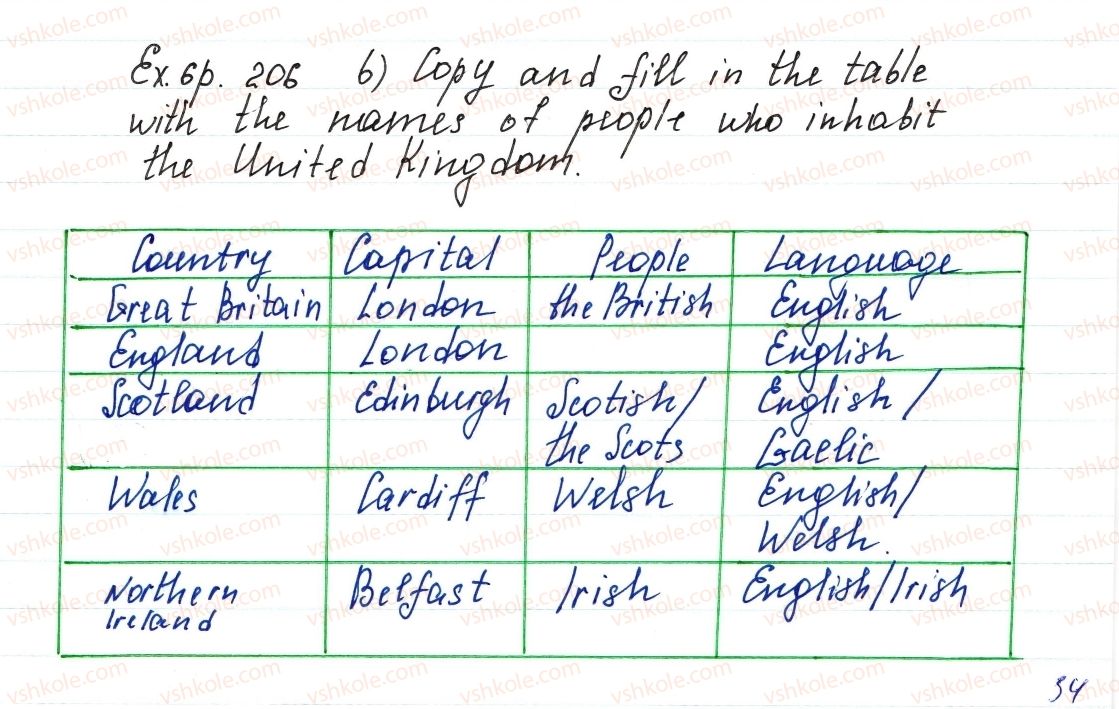 Ex. 6p. 206 b) Copy and fill in the table
with the names of people who inhabit
the United Kingdom.
Country Capital People Language
Great Britain London the British English
England London English
Scotland Edinburgh Scotish/ English /
the Scots Gaelic
Wales Cardiff Welsh English/
Welsh.
Northern Belfast Irish English/Irish
Ireland
34
vshkole.com